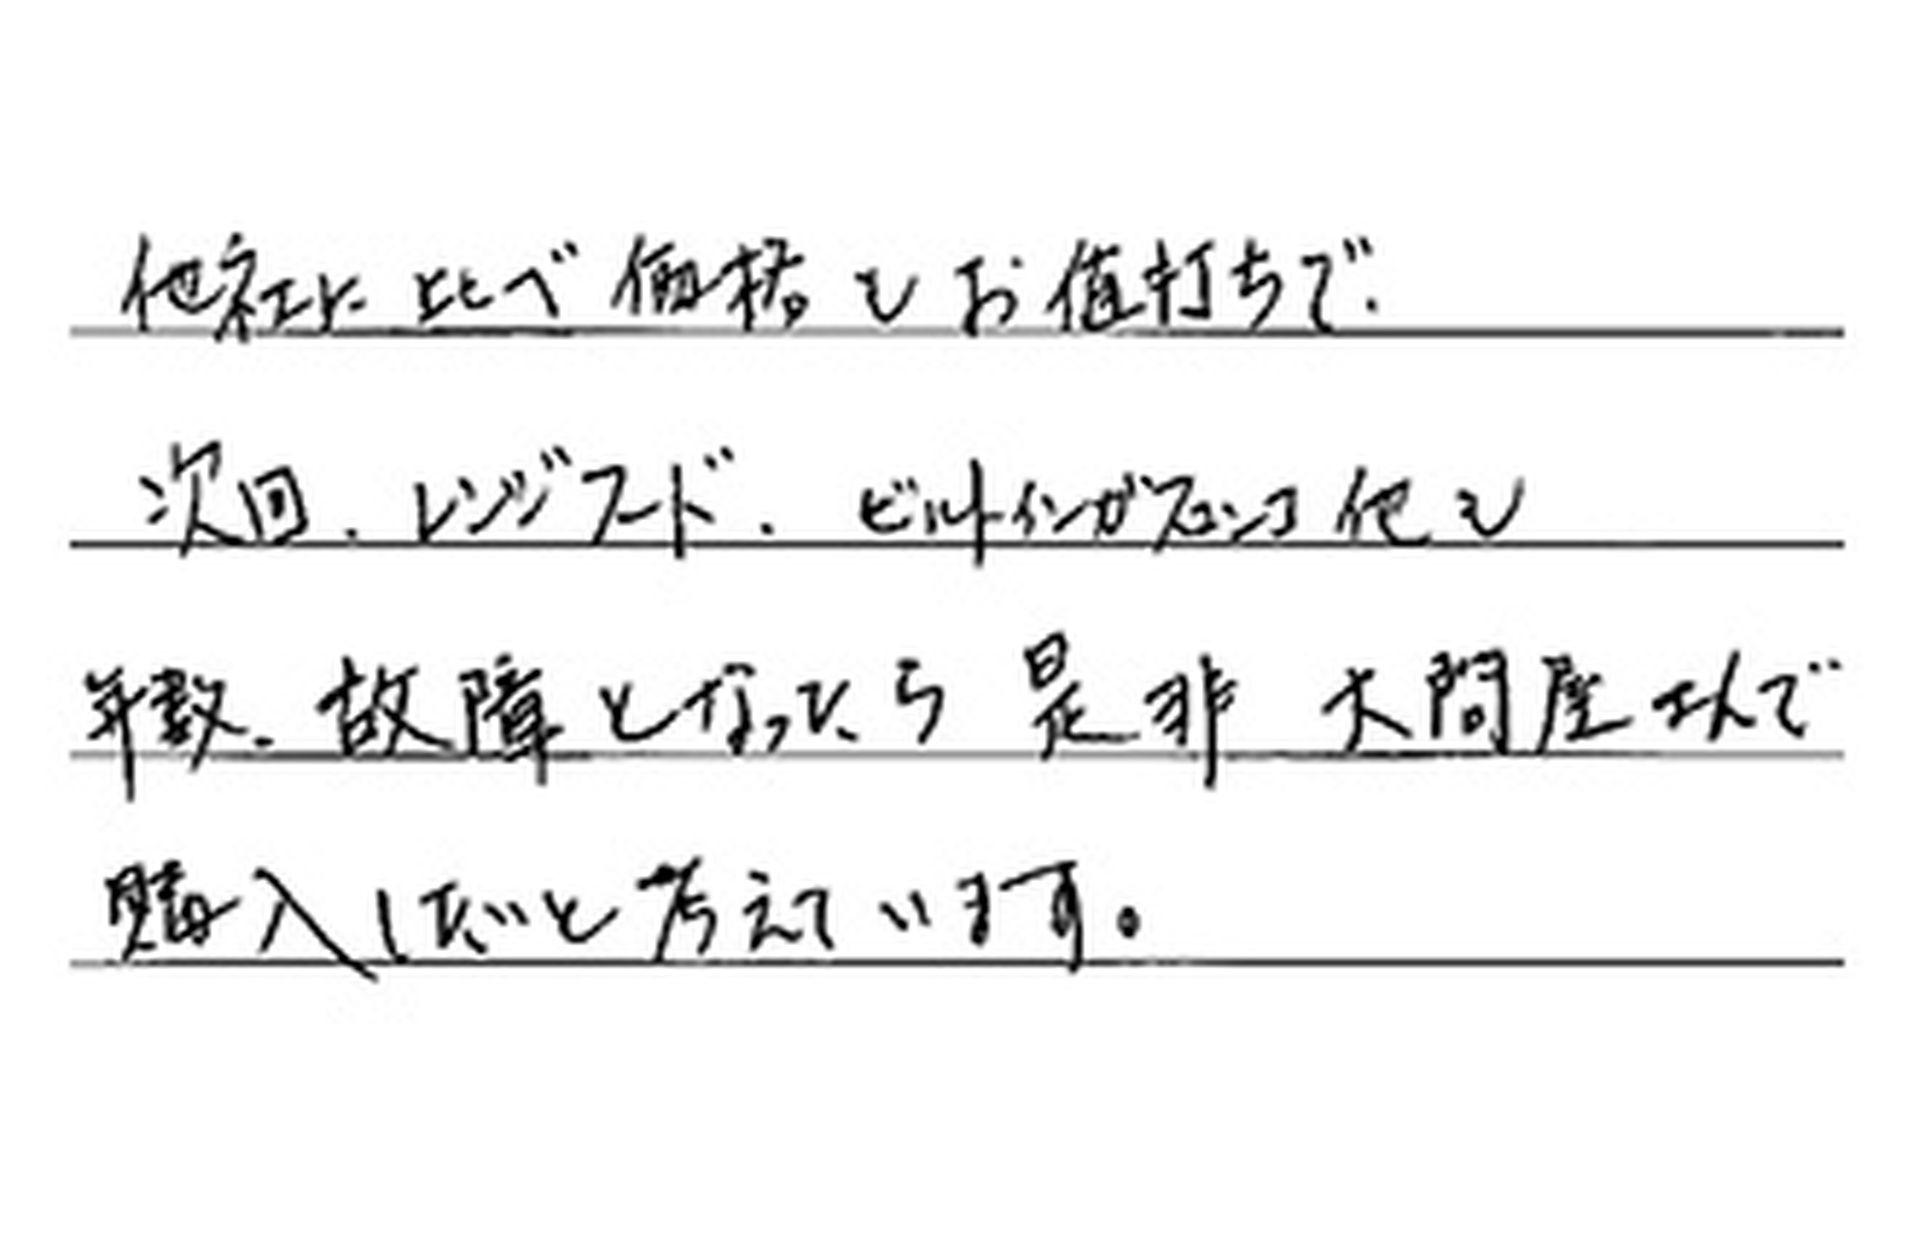 他社に比べ価格もお値打ちで、
次回、レンジフード、ビルトインガスコンロ他も
年数、故障となったら是非大問屋さんで
購入したいと考えています。